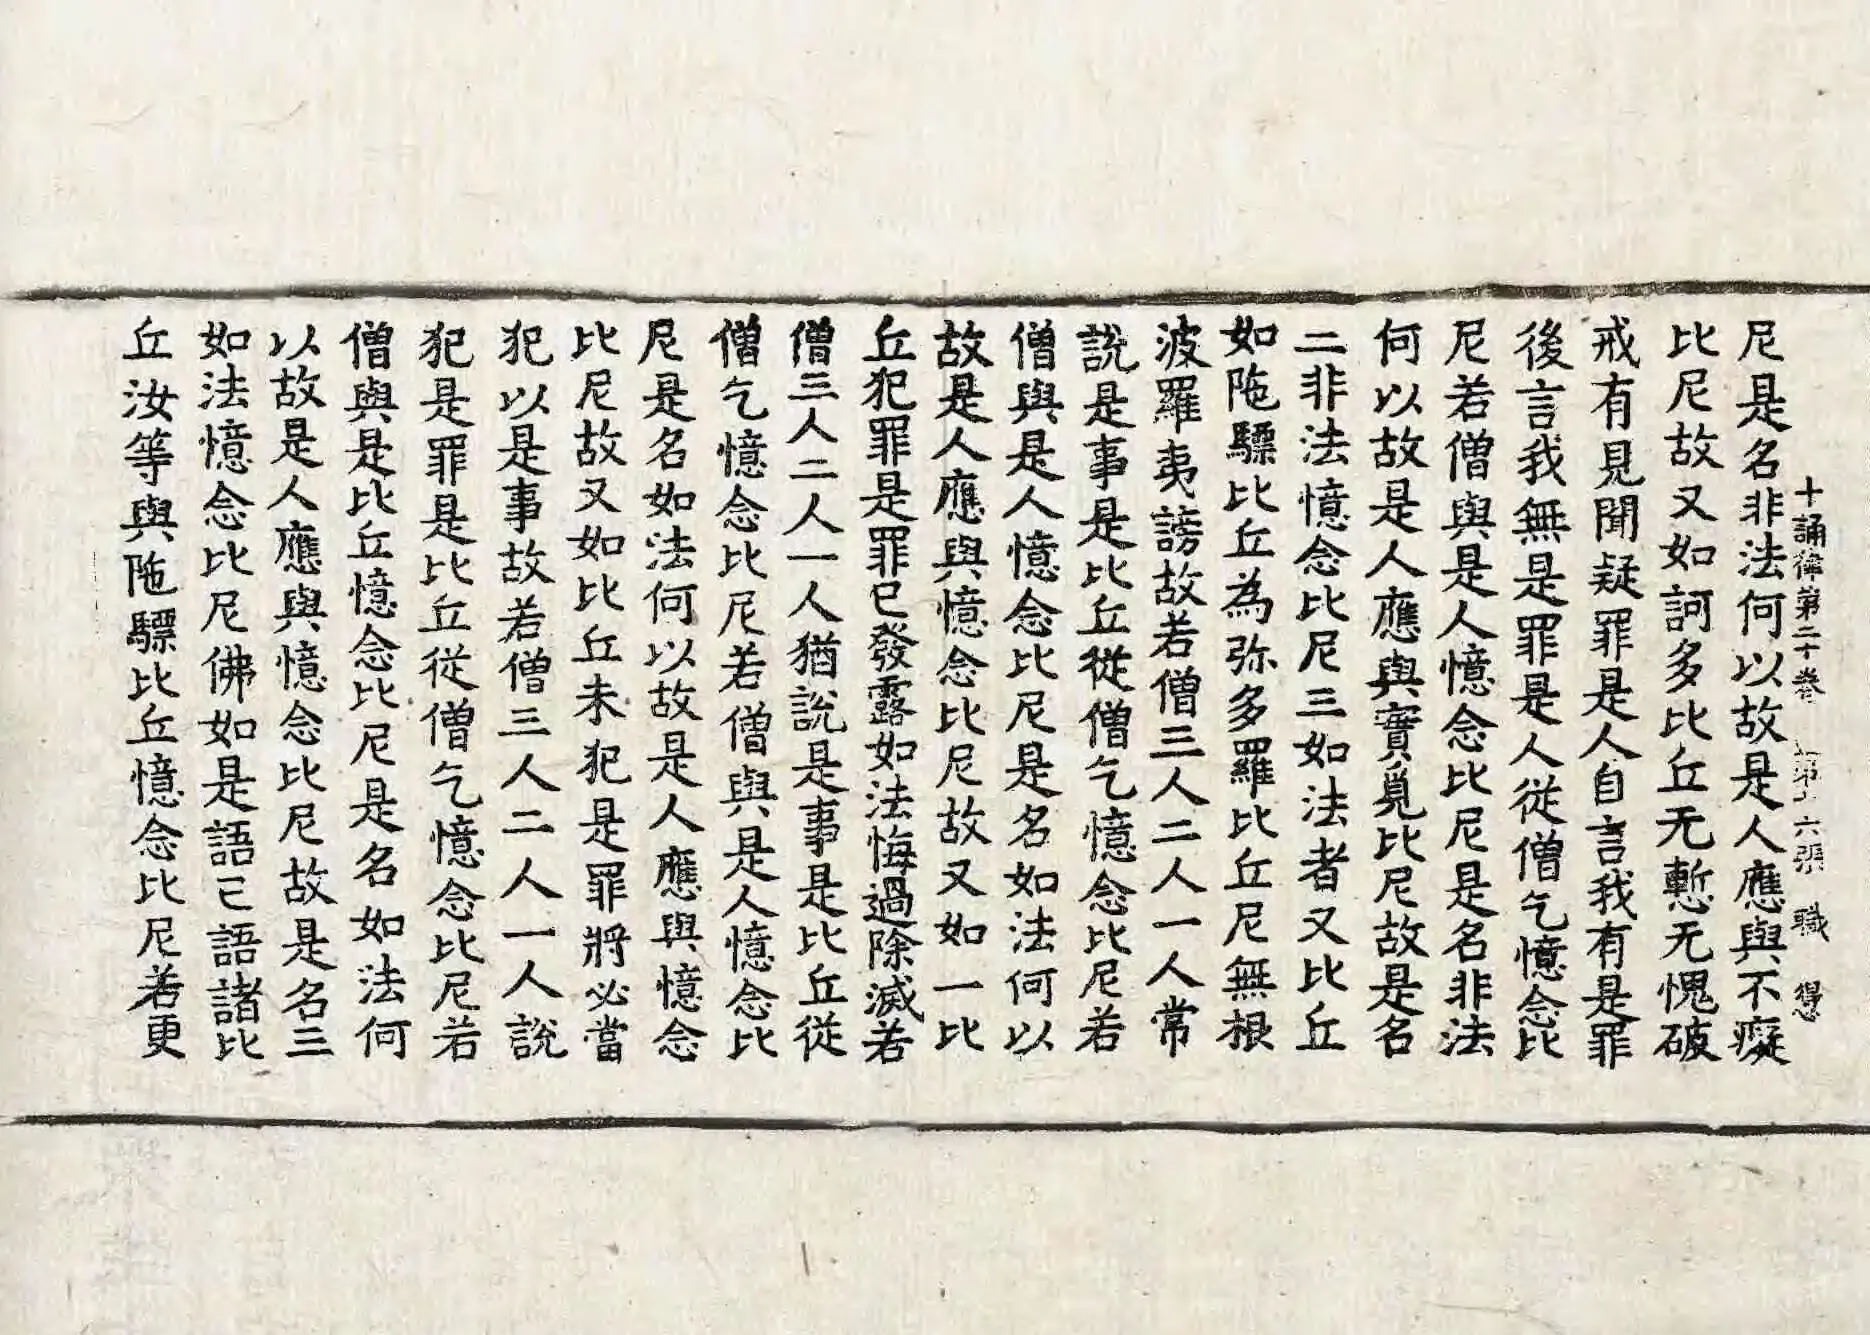 十誦律第二十卷 第十六張 職 得
尼是名非法何以故是人應與不癡
比尼故又如訶多比丘无慙无愧破
戒有見聞疑罪是人自言我有是罪
後言我無是罪是人從僧乞憶念比
尼若僧與是人憶念比尼是名非法
何以故是人應與實覓比尼故是名
二非法憶念比尼三如法者又比丘
如陁驃比丘為弥多羅比丘尼無根
波羅夷謗故若僧三人二人一人常
說是事是比丘從僧乞憶念比尼若
僧與是人憶念比尼是名如法何以
故是人應與憶念比尼故又如一比
丘犯罪是罪已發露如法悔過除滅若
僧三人二人一人猶說是事是比丘從
僧乞憶念比尼若僧與是人憶念比
尼是名如法何以故是人應與憶念
比尼故又如比丘未犯是罪將必當
犯以是事故若僧三人二人一人說
犯是罪是比丘從僧乞憶念比尼若
僧與是比丘憶念比尼是名如法何
以故是人應與憶念比尼故是名三
如法憶念比尼佛如是語已語諸比
丘汝等與陁驃比丘憶念比尼若更